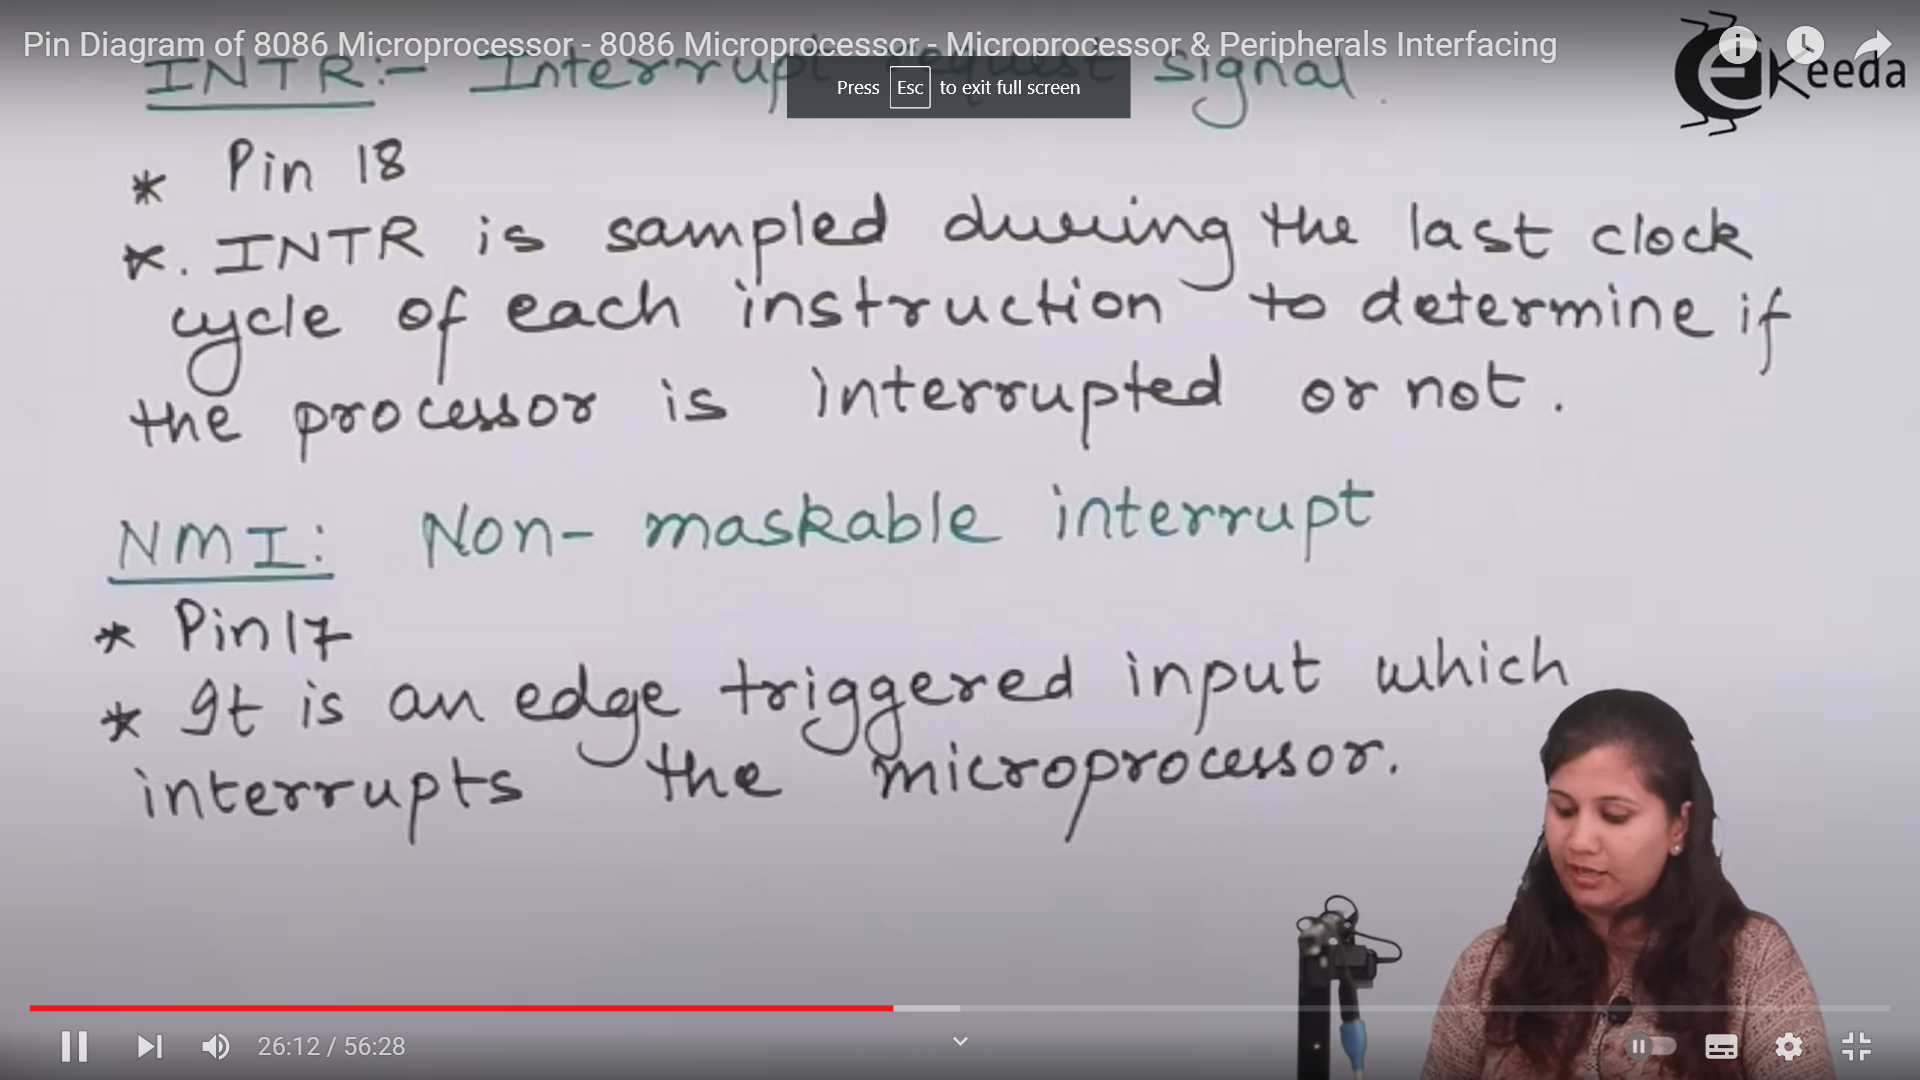 Pin Diagram of 8086 Microprocessor - 8086 Microprocessor - Microprocessor & Peripherals Interfacing
INTR:- Interrupt request signal.
Press Esc to exit full screen
eKeeda
* Pin 18
*. INTR is sampled during the last clock
cycle of each instruction to determine if
the processor is interrupted or not.
NMI: Non-maskable interrupt
* Pin 17
* It is an edge triggered input which
interrupts the microprocessor.
26:12 / 56:28